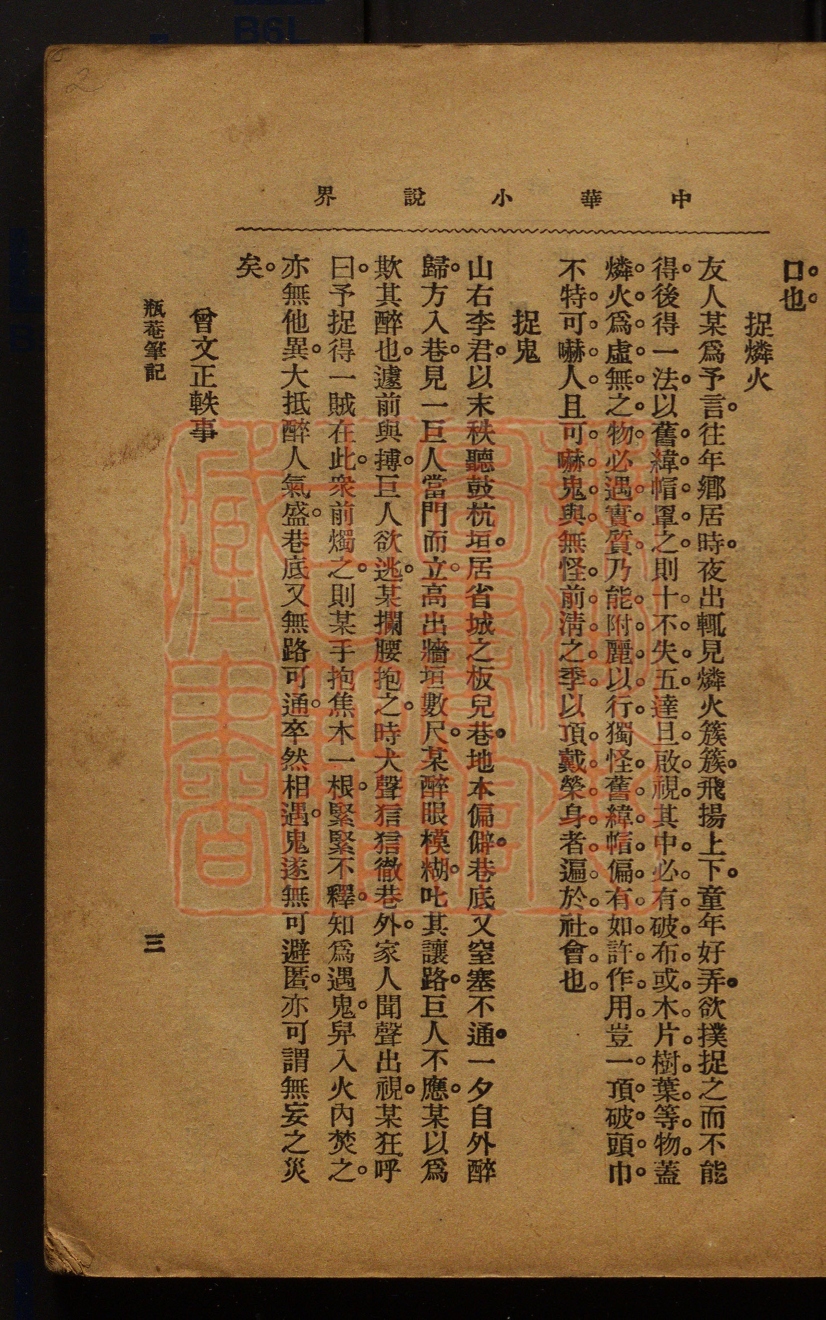 中華小說界
口也。
捉燐火
友人某爲予言。往年鄉居時。夜出輒見燐火簇簇。飛揚上下。童年好弄。欲撲捉之而不能
得。後得一法。以舊緯帽罩之。則十不失五。達旦啟視。其中必有破布或木片樹葉等物。蓋
燐火爲虛無之物。必遇實質。乃能附麗以行。獨怪舊緯帽偏有如許作用。豈一頂破頭巾。
不特可嚇人。且可嚇鬼與。無怪前淸之季。以頂戴榮身者遍於社會也。
捉鬼
山右李君。以末秩聽鼓杭垣。居省城之板兒巷。地本偏僻。巷底又窒塞不通。一夕自外醉
歸。方入巷。見一巨人當門而立。高出牆垣數尺。某醉眼模糊。叱其讓路。巨人不應。某以爲
欺其醉也。遽前與搏。巨人欲逃。某攔腰抱之。時犬聲狺狺徹巷外。家人聞聲出視。某狂呼
曰。予捉得一賊在此。衆前燭之。則某手抱焦木一根。緊緊不釋。知爲遇鬼。舁入火內焚之。
亦無他異。大抵醉人氣盛。巷底又無路可通。卒然相遇。鬼遂無可避匿。亦可謂無妄之災
矣。
曾文正軼事
瓶菴筆記
三
B6L
2